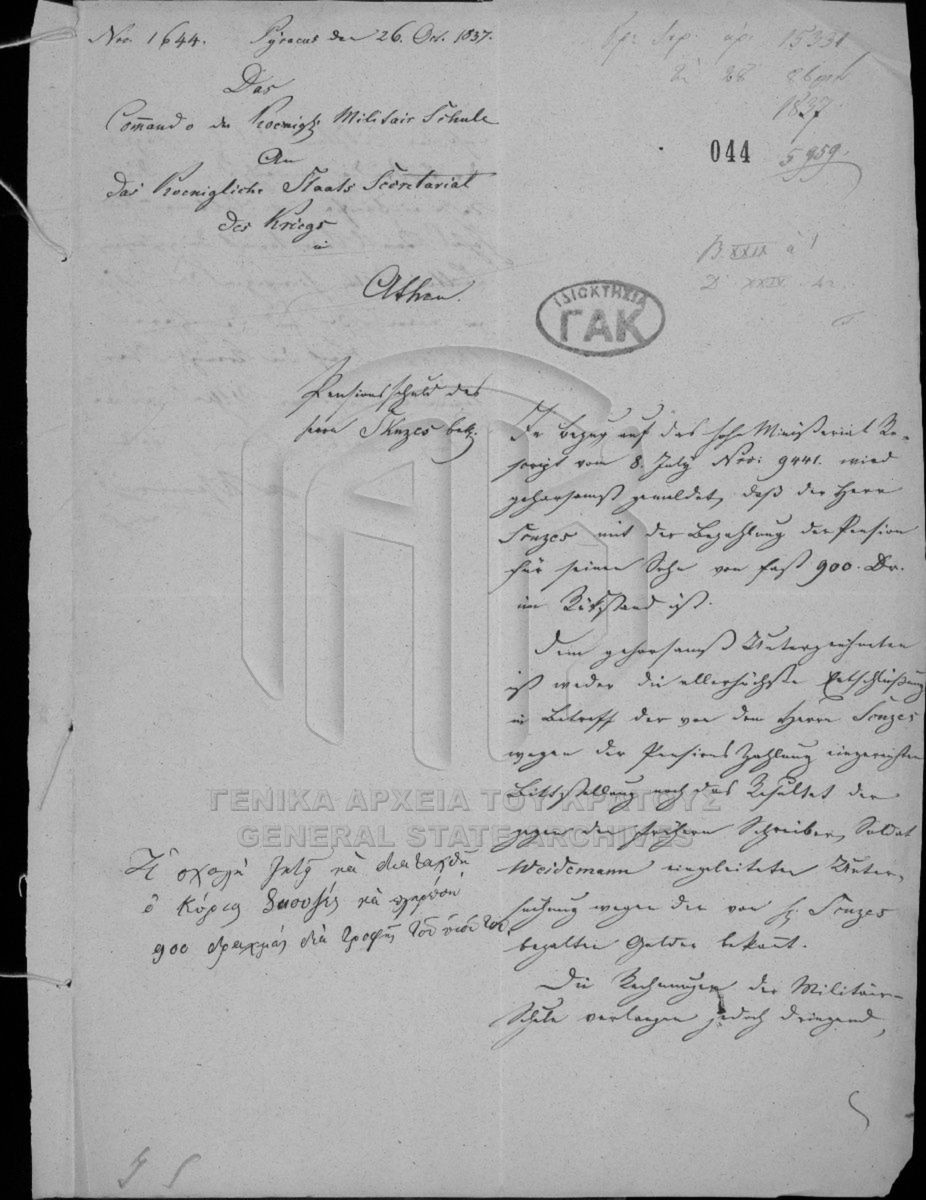 Nro. 1644. Pyraeus den 26. Oct. 1837.
Das
Com̄ando der Koenigl. Militair Schule
An
das Koenigliche Staats Secretariat
des Kriegs
in
Athen.
Pensionsschuld des
Herrn Skuzes betr.
15331
28
1837
044
5959.
B XXIX à 1
D XXIX
ΙΔΙΟΚΤΗΣΙΑ
ΓΑΚ
In Bezug auf das hohe Ministerial Re-
script vom 8. July Nro: 9441. wird
gehorsamst gemeldet, daß der Herr
Scuzes mit der Bezahlung der Pension
für seinen Sohn von fast 900. Dr.
im Rükstand ist.
Dem gehorsamst Unterzeichneten
ist weder die allerhöchste Entschlüßung
in Betreff der von dem Herrn Scuzes
wegen der Pensions Zahlung eingereichten
Bittstellung noch das Resultat der
gegen den frühern Schreiber, Soldat
Weidemann eingeleiteten Unter-
suchung wegen der von H: Scuzes
bezalten Gelder bekan̄t.
Die Rechnungen der Militär-
Schule verlangen jedoch dringend,
Ἡ σχολὴ ζητεῖ νὰ διαταχθῇ
ὁ Κύριος Σκουζές νὰ πληρώσῃ
900 δραχμάς διὰ τροφὴς τοῦ υἱοῦ του
ΓΕΝΙΚΑ ΑΡΧΕΙΑ ΤΟΥ ΚΡΑΤΟΥΣ
GENERAL STATE ARCHIVES